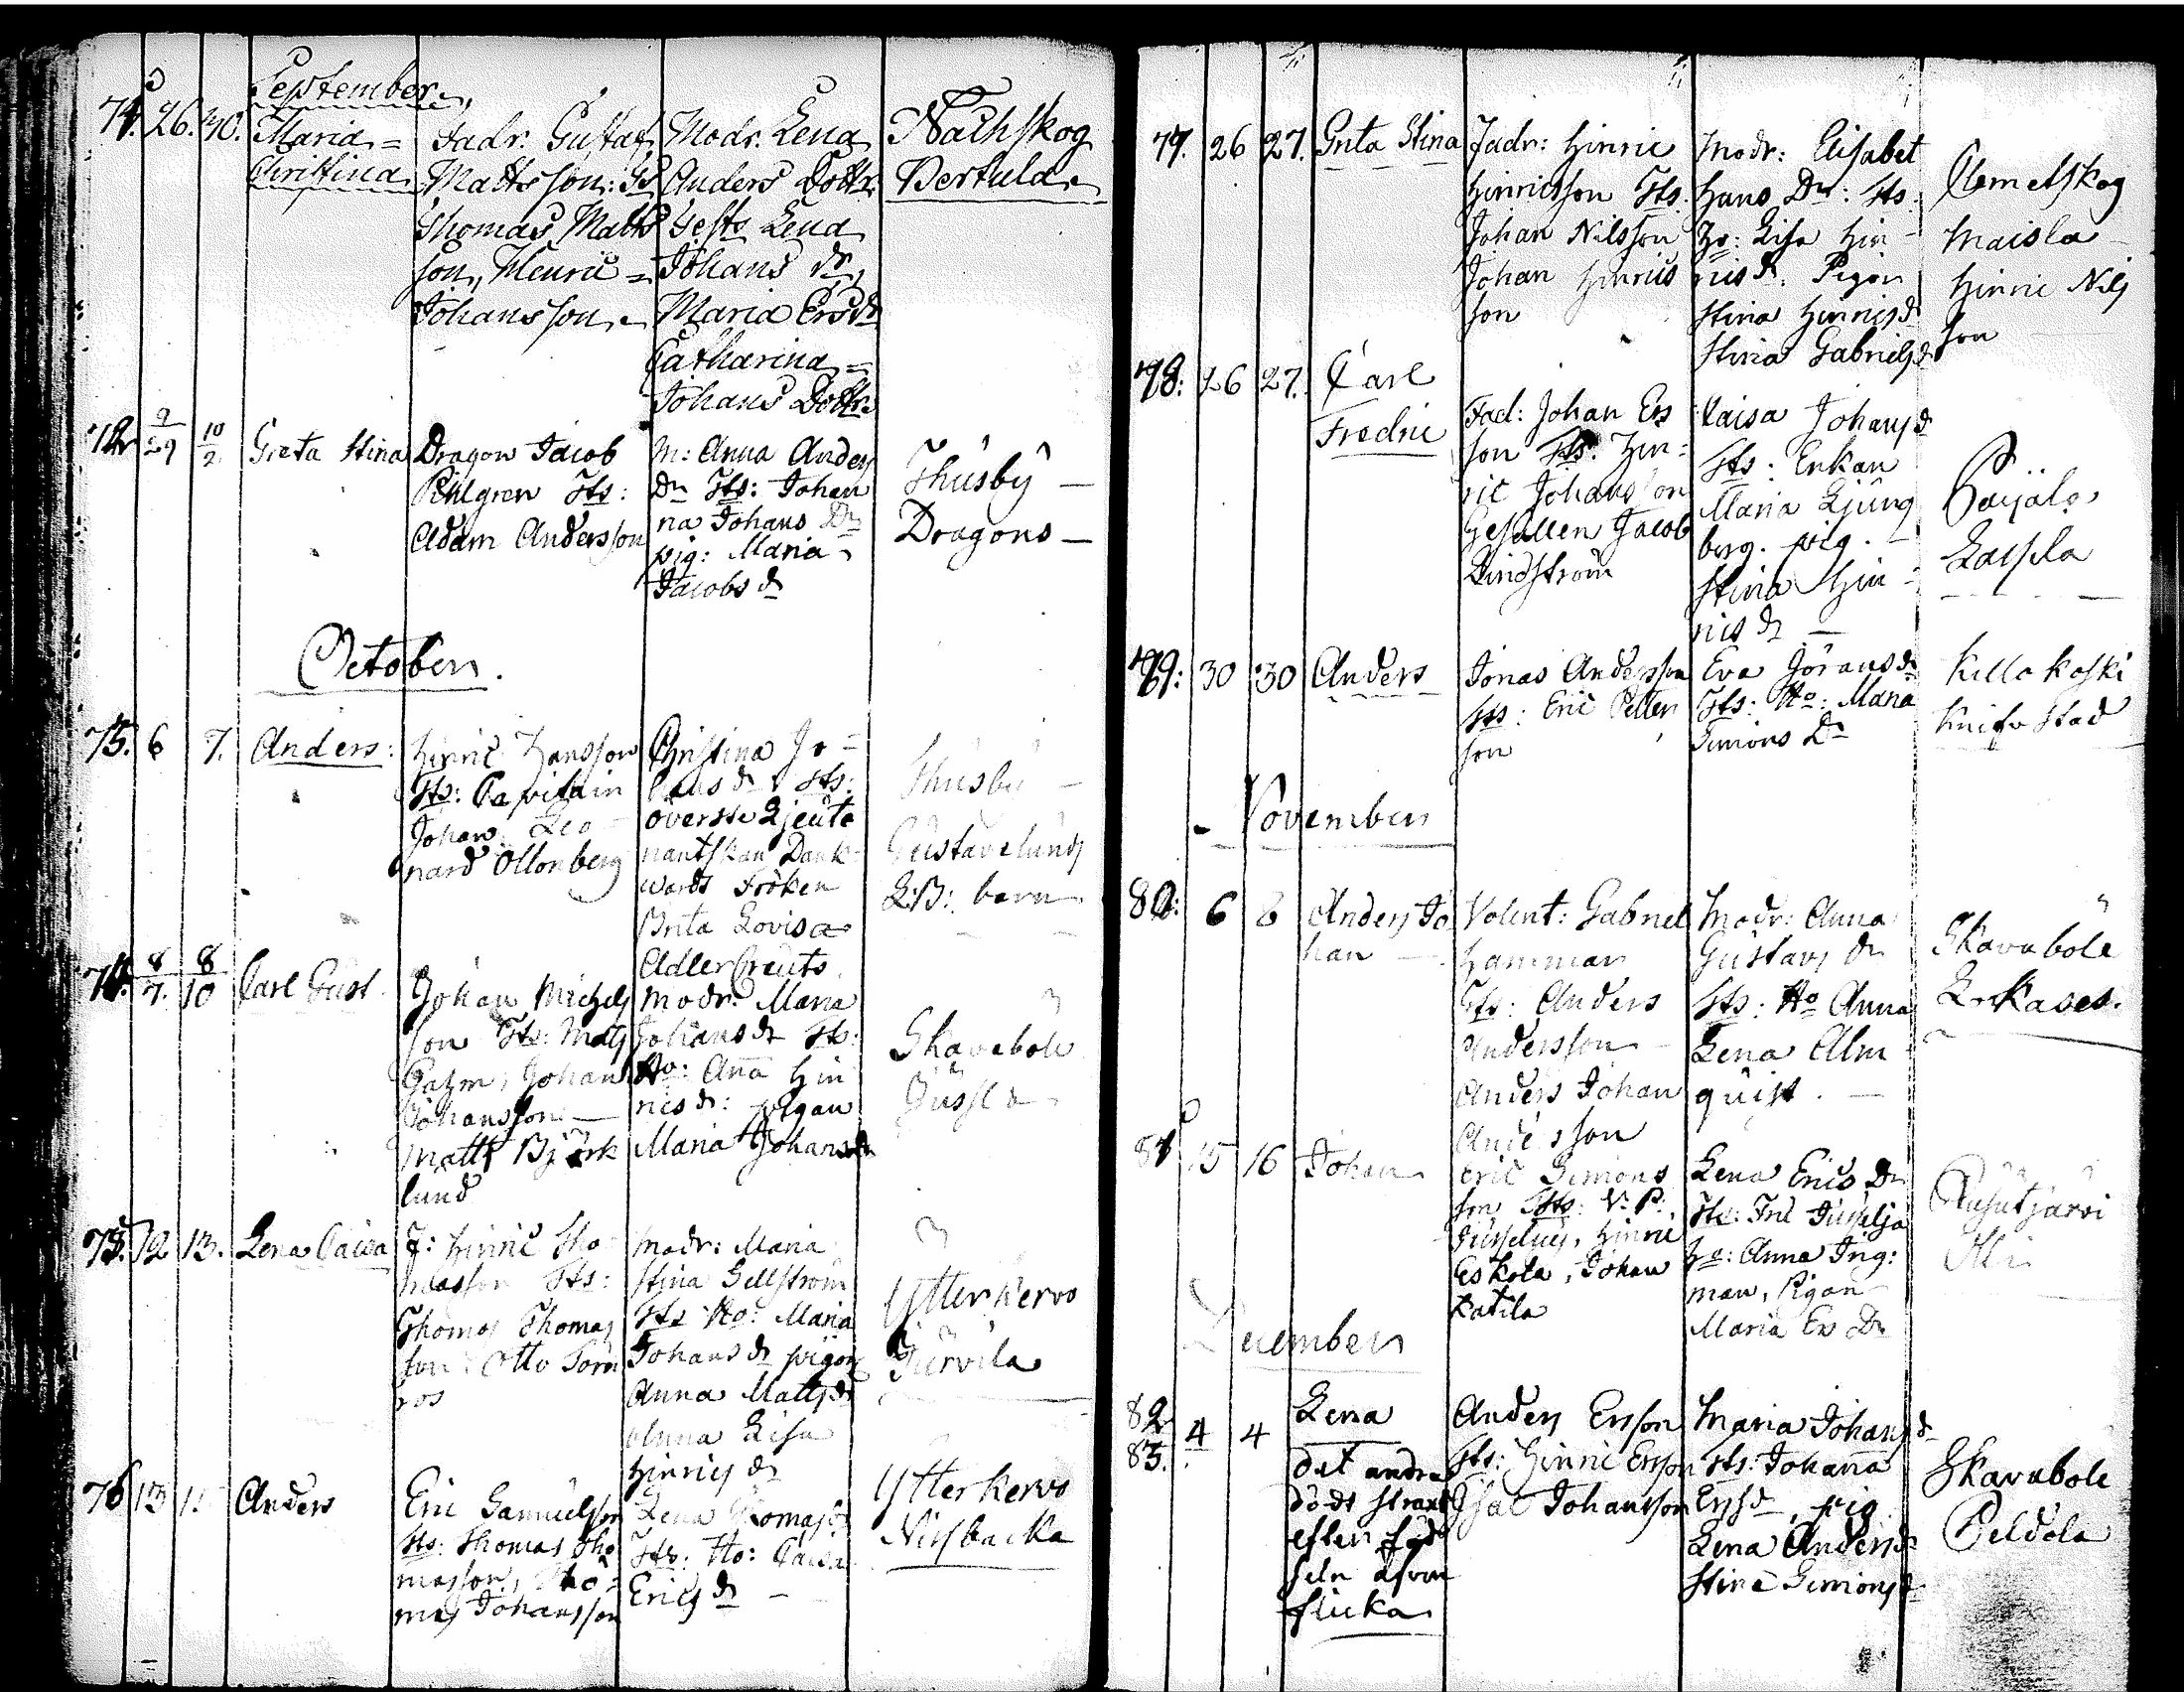 September
71. 26. 30. Maria=
Christina
Fadr. Gustaf
Mattsson: Gs
Thomas Matts
son, Henric=
Johansson
Modr. Lena
Anders Dottr
Gests Lena
Johans dr,
Maria Ersdr
Catharina=
Johans Dottr
Nackskog
Pertula
72 9/29 10/2 Greta Stina
Dragon Jacob
Pihlgren Fts:
Adam Andersson
M: Anna Anders
Dr Fts: Johan
na Johans Dr
pig: Maria
Jacobs dr
Thusby —
Dragons —
October.
75. 6 7. Anders:
Hinric Hansson
Fts: Capitain
Johan Leo
nard Ollonberg
Christina Jo=
hans dr Fts:
överste Ljeute
nantskan Dank
wardt Fröken
Brita Lovisa
Adlercreuts
Thusby —
Gustavelunds
barn
74. 8/7. 8/10 Carl Gust.
Johan Michels
son Fts: Mats
Johan
Johansson —
Matts Björk
lund
Modr: Maria
Johans dr Fts:
Ho: Anna Hin
rics dr: pigan
Maria Johansdr
Skavabole
Jussila
75. 12 13. Lena Caisa
F: Hinric Tho
masson Fts:
Thomas Thomas
son Otto Törn
ros
Modr: Maria
Stina Sellström
Fts Ho: Maria
Johans dr pigor
Anna Mattsdr
Anna Lisa
Hinrics dr
Ytterkervo
Jurvila
76 13 Anders
Eric Samuelsson
Fts: Thomas Tho
masson, Tho=
mas Johansson
Lena Thomasdr
Fts: Ho: Caisa
Erics dr —
Ytterkervo
Nissbacka
77. 26 27. Greta Stina
Fadr: Hinric
Hinricsson Fts.
Johan Nilsson
Johan Hinrics
son
Modr: Elisabet
Hans Dr: Fts.
Ho: Lisa Hin-
rics dr. Pigor
Stina Hinricsdr
Stina Gabrielsdr
Clemetskog
Maisla
Hinric Nils
son
78: 26 27. Carl
Fredric
Fad: Johan Ers
son Fts. Hin=
ric Johansson
Gesällen Jacob
Lindström
Kaisa Johansdr
Fts: Enkan
Maria Ljung
berg. pig.
Stina Hin=
rics dr —
Paijala
Laisila
79: 30 30 Anders
Jonas Andersson
Fts: Eric Petter
son
Eva Göransdr
Fts: Ho: Maria
Simons Dr
Kellokoski
Knifvstad
November
80: 6 8 Anders Jo
han —
Volent: Gabriel
Hammar
Fts: Anders
Andersson —
Anders Johan
Andersson
Modr: Anna
Gustavs dr
Fts: Ho Anna
Lena Alm
quist. —
Skavabole
81 15 16 Johan
Eric Simons
son Fts: V. P.
Jusselius, Hinric
Eskola, Johan
Katila
Lena Erics Dr
Fts: Fru Jusselja
Ho: Anna Ing:
man, Pigan
Maria Er Dr
Rusutjärvi
Olli
December
82
83. 4 4 Lena
det andra
dödt straxt
efter föd
seln äfven
flicka
Anders Ersson
Fts: Hinric Ersson
Isac Johansson
Maria Johansdr
Fts: Johanna
Ersdr, pig
Lena Andersdr
Stina Simonsdr
Skavabole
Peldola